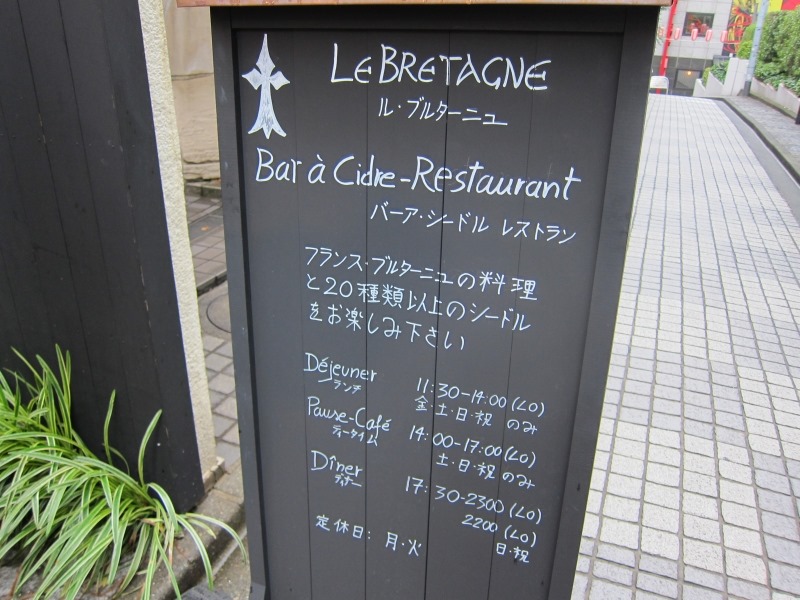 LE BRETAGNE
ル・ブルターニュ
Bar à Cidre-Restaurant
バーア・シードル レストラン
フランス・ブルターニュの料理
と20種類以上のシードル
をお楽しみ下さい
Déjeuner 11:30-14:00 (LO)
ランチ 金・土・日・祝 のみ
Pause-Café 14:00-17:00 (LO)
ティータイム 土・日・祝 のみ
Dîner 17:30-2300 (LO)
ディナー 2200 (LO)
日・祝
定休日: 月・火